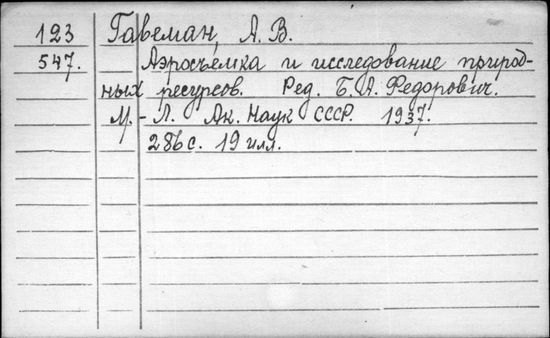 123 Гавеман, А. В.
547. Аэросъёмка и исследование природ-
ных ресурсов. Ред. Б. А. Федорович.
М.-Л. Ак. Наук СССР. 1937.
286 с. 19 илл.